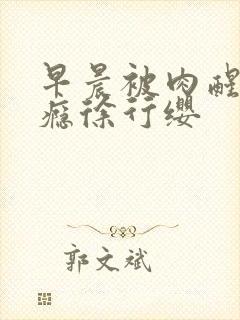 早晨被肉醒
瘾徐行缨
郭文斌